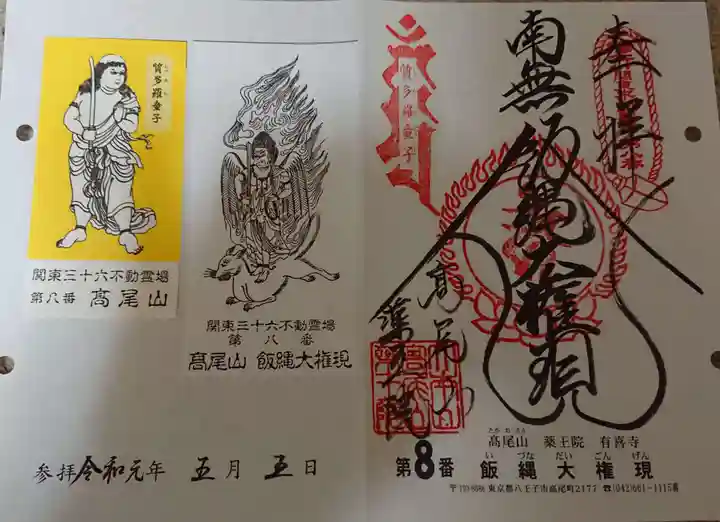 質多羅童子
関東三十六不動霊場
第八番 髙尾山
関東三十六不動霊場
第八番
髙尾山 飯縄大権現
参拝令和元年 五月 五日
奉拝
南無飯縄大権現
質多羅童子
髙尾山
薬王院
たかおさん
髙尾山 薬王院 有喜寺
いづなだいごんげん
第8番 飯縄大権現
東京都八王子市高尾町2177 ☎(042)661-1115番